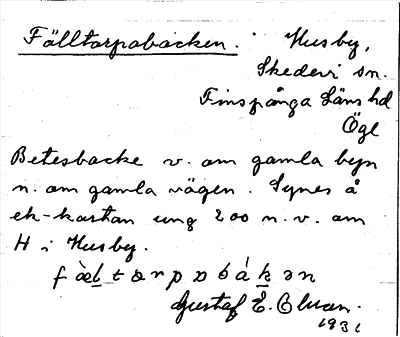 Fälltorpabacken. Husby,
Skedevi sn.
Finspånga Läns hd
Ögl
Betesbacke v. om gamla byn
n. om gamla vägen. Synes å
ek-kartan ung 200 n.v. om
H i Husby.
Gustaf E. Olsson.
1931